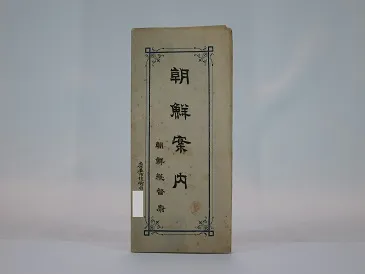 朝鮮案内
朝鮮総督府